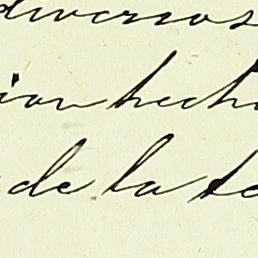 diversos
ion hech
de la te